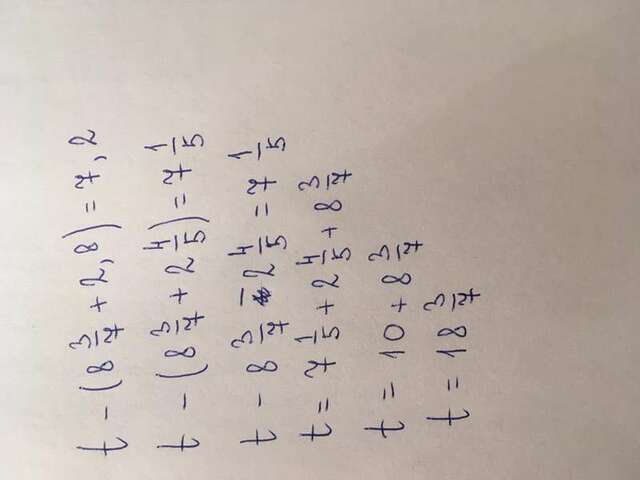 t - (8 3/7 + 2,8) = 7,2
t - (8 3/7 + 2 4/5) = 7 1/5
t - 8 3/7 - 2 4/5 = 7 1/5
t = 7 1/5 + 2 4/5 + 8 3/7
t = 10 + 8 3/7
t = 18 3/7